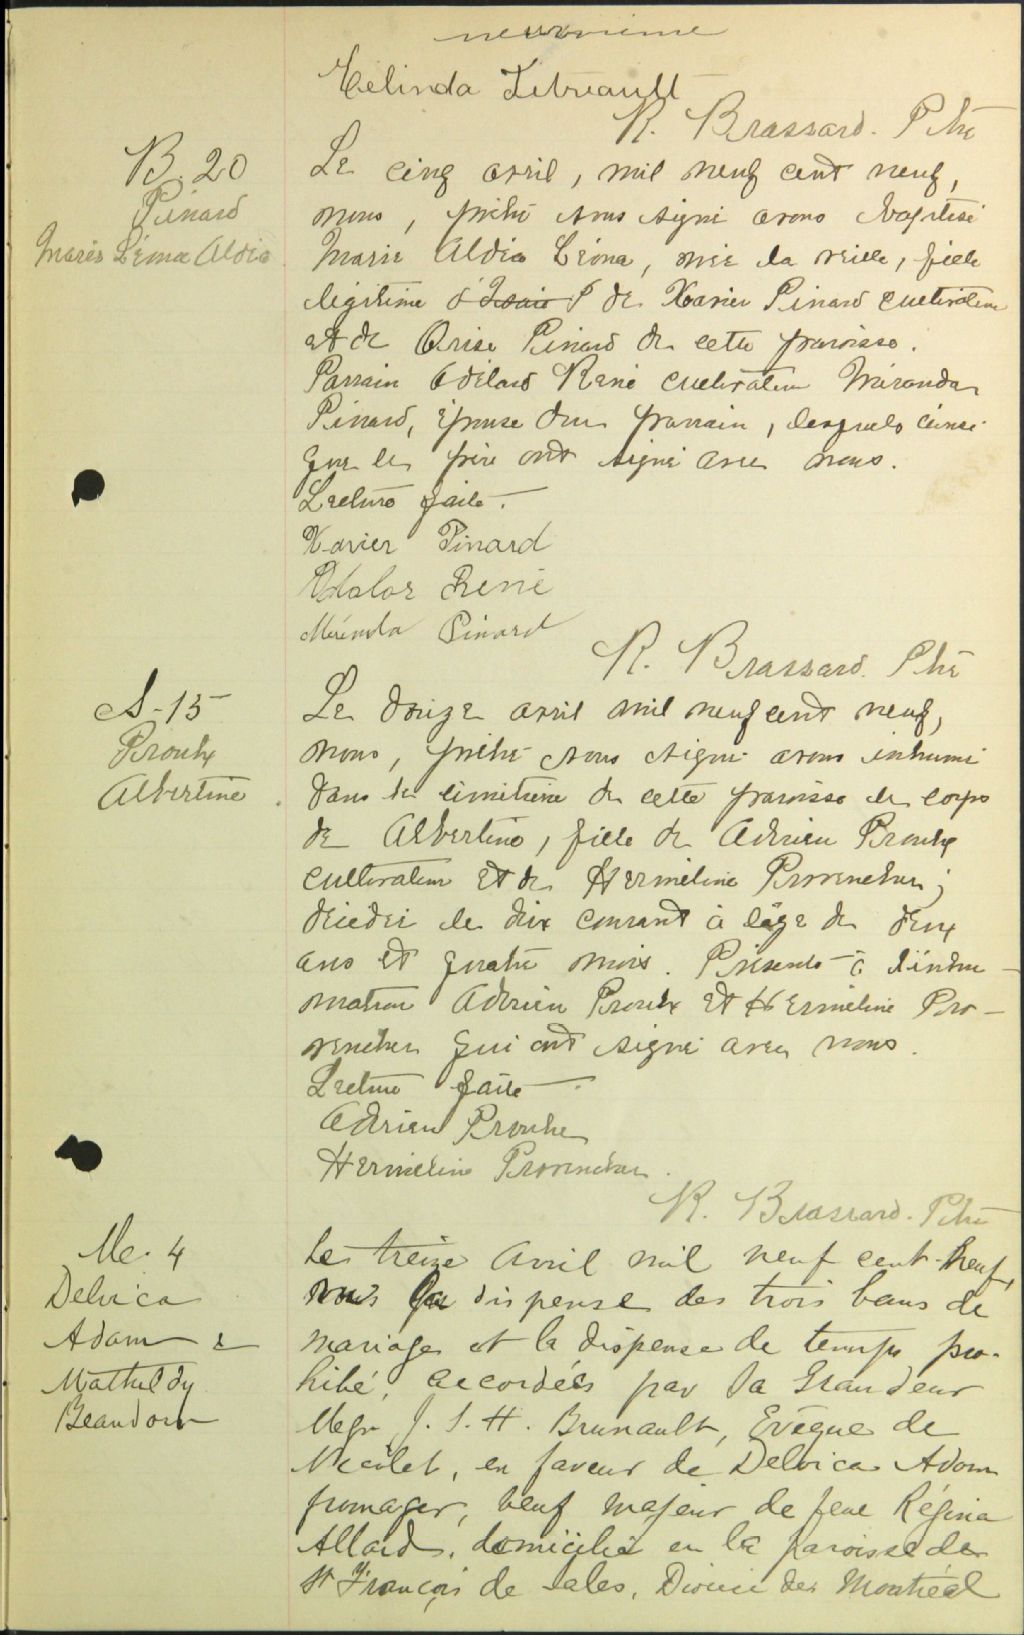 neuvième
Celinda Tetreault
R. Brassard. Ptre
B. 20
Pinard
Marie Léona Aldia
Le cinq avril, mil neuf cent neuf,
nous, prêtre sous signé avons baptisé
Marie Aldia Léona, née la veille, fille
légitime d'Isaie P de Xavier Pinard cultivateur
et de Orise Pinard de cette paroisse.
Parrain Adélard René cultivateur Miranda
Pinard, épouse du parrain, lesquels ainsi
que le père ont signé avec nous.
Lecture faite.
Xavier Pinard
René
Pinard
R. Brassard. Ptre
S-15
Proulx
Albertine
Le douze avril mil neuf cent neuf,
nous, prêtre sous signé avons inhumé
dans le cimetière de cette paroisse le corps
de Albertine, fille de Adrien Proulx
cultivateur et de Herméline Provencher;
décédée le dix courant à l'âge de deux
ans et quatre mois. Présents à l'inhu-
mation Adrien Proulx et Herméline Pro-
vencher qui ont signé avec nous.
Lecture faite.
Adrien Proulx
Herméline Provencher.
R. Brassard. Ptre
M. 4
Delvica
Adam &
Mathildy
Beaudoin
Le treize Avril mil neuf cent-neuf,
vu la dispense des trois bans de
mariage et la dispense de temps pro-
hibé, accordées par Sa Grandeur
Mgr J. S. H. Brunault, Evêque de
Nicolet, en faveur de Delvica Adam
fromager, veuf majeur de feue Régina
Allard, domicilié en la paroisse de
St François de Sales, Diocèse de Montréal